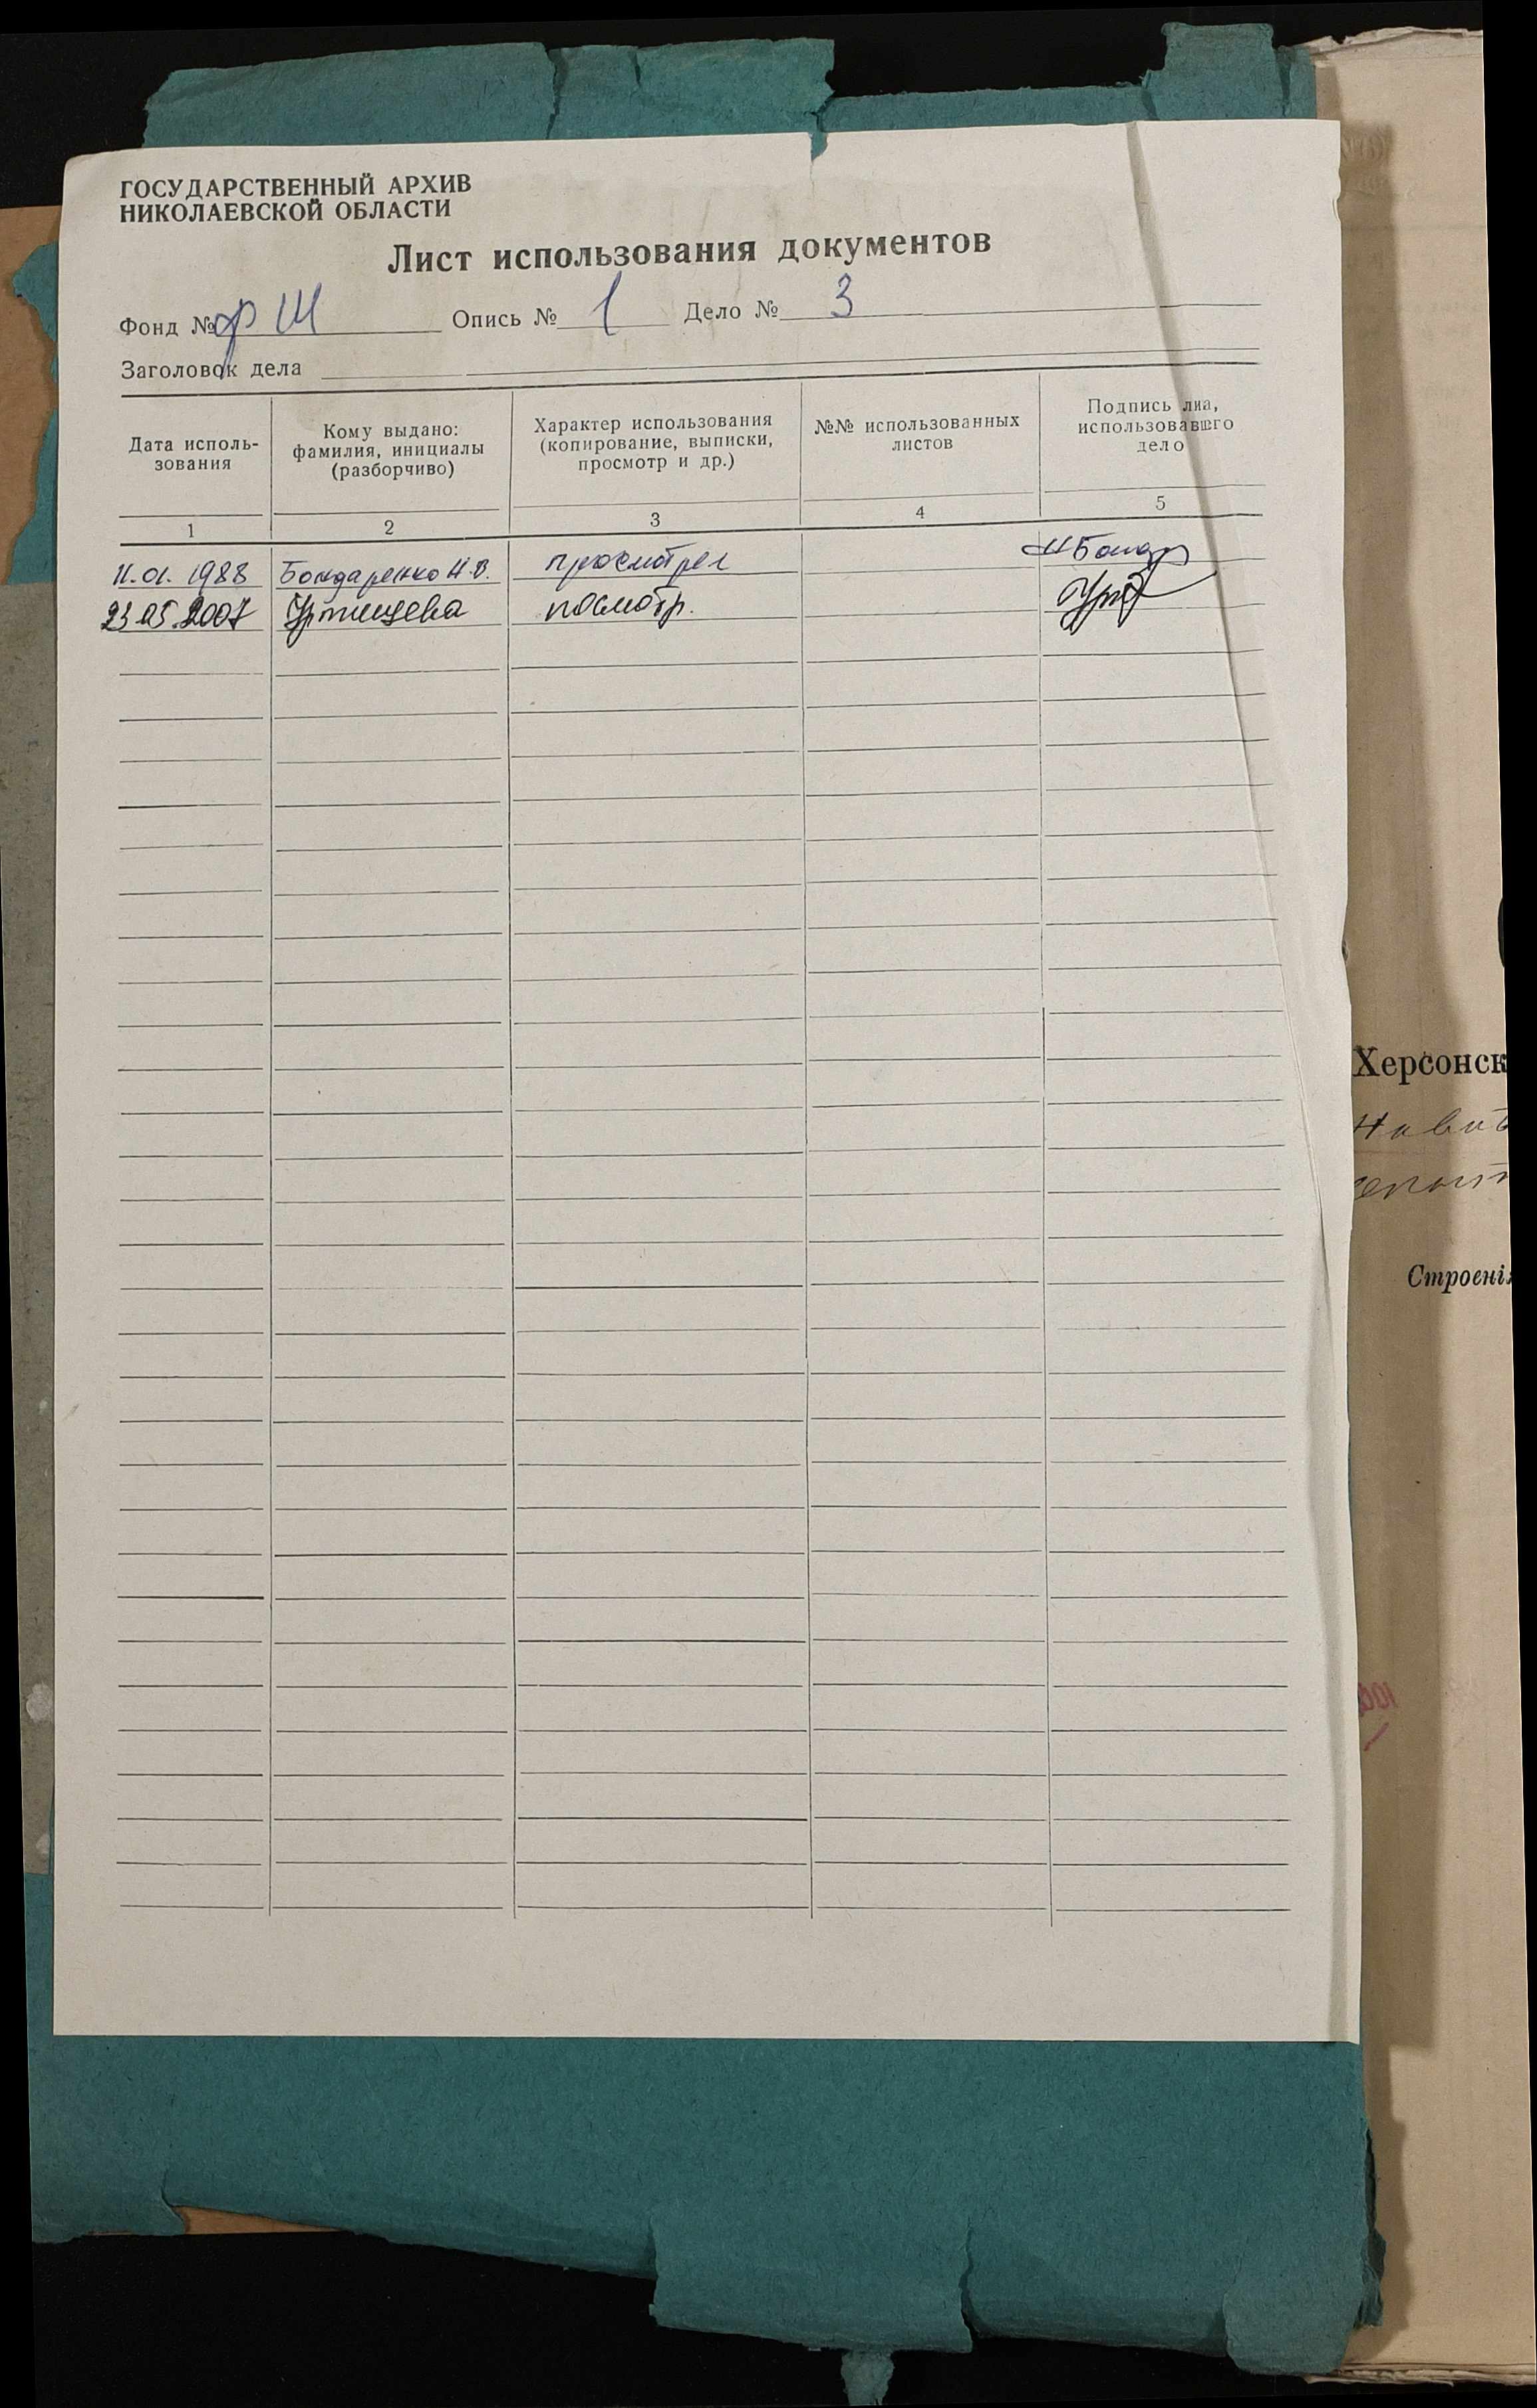 ГОСУДАРСТВЕННЫЙ АРХИВ
НИКОЛАЕВСКОЙ ОБЛАСТИ
Лист использования документов
Фонд № Опись № 1 Дело № 3
Заголовок дела
Дата исполь-
зования
Кому выдано:
фамилия, инициалы
(разборчиво)
Характер использования
(копирование, выписки,
просмотр и др.)
№№ использованных
листов
Подпись лица,
использовавшего
дело
1 2 3 4 5
11.01. 1988 Бондаренко Н.В. просмотрел
23.05.2007 посмотр.
Херсонск
Строені